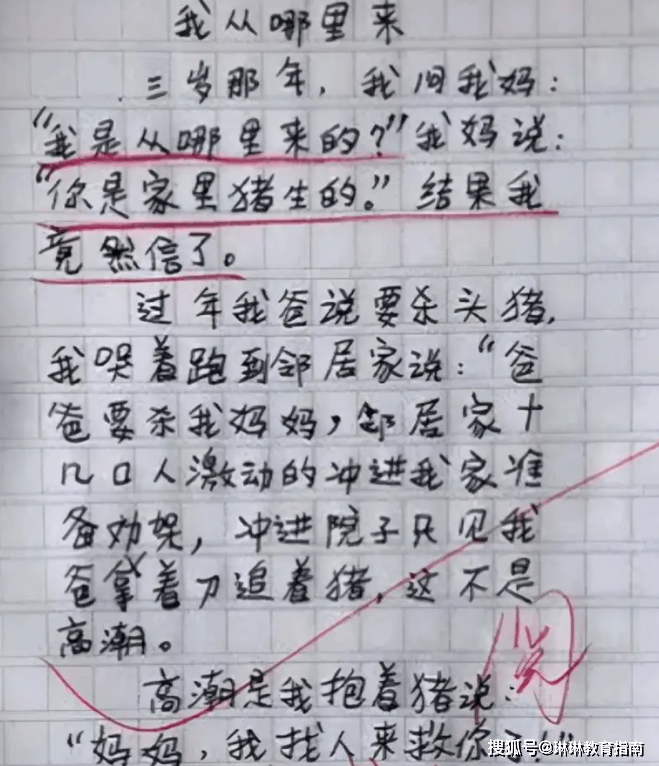 我从哪里来
三岁那年，我问我妈：
“我是从哪里来的？”我妈说：
“你是家里猪生的。”结果我
竟然信了。
过年我爸说要杀头猪，
我哭着跑到邻居家说：“爸
爸要杀我妈妈，邻居家十
几口人激动的冲进我家准
备劝架，冲进院子只见我
爸拿着刀追着猪，这不是
高潮。
高潮是我抱着猪说：
“妈妈，我找人来救你了！”
阅
搜狐号@琳琳教育指南